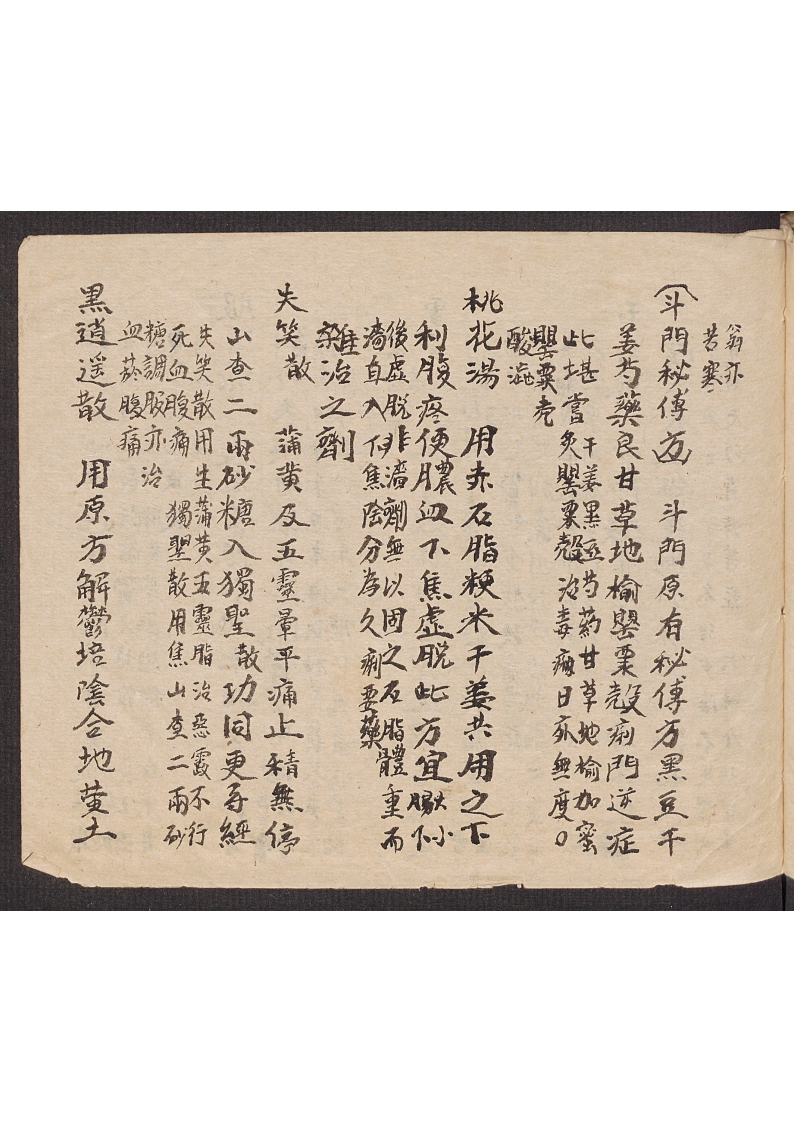 翁亦
苦寒
斗門秘傳方 斗門原有秘傳方黑豆干
姜芍藥良甘草地榆罌粟殼痢門逆症
此堪嘗
干姜黑豆芍药甘草地榆加蜜
炙罌粟殼治毒痢日夜無度
罌粟壳
酸澁
桃花湯 用赤石脂粳米干姜共用之下
利腹疼便膿血下焦虛脫此方宜
後虛脫非澁劑無以固之石脂體重而
澁直入下焦陰分為久痢要藥
雜治之劑
失笑散 蒲黄及五靈暈平痛止積無停
山查二兩砂糖入獨聖散功同更守經
失笑散用生蒲黄五靈脂治惡露不行
死血腹痛 獨聖散用焦山查二兩砂
糖調服亦治
血瘀腹痛
黑逍遥散 用原方解鬱培陰合地黄土